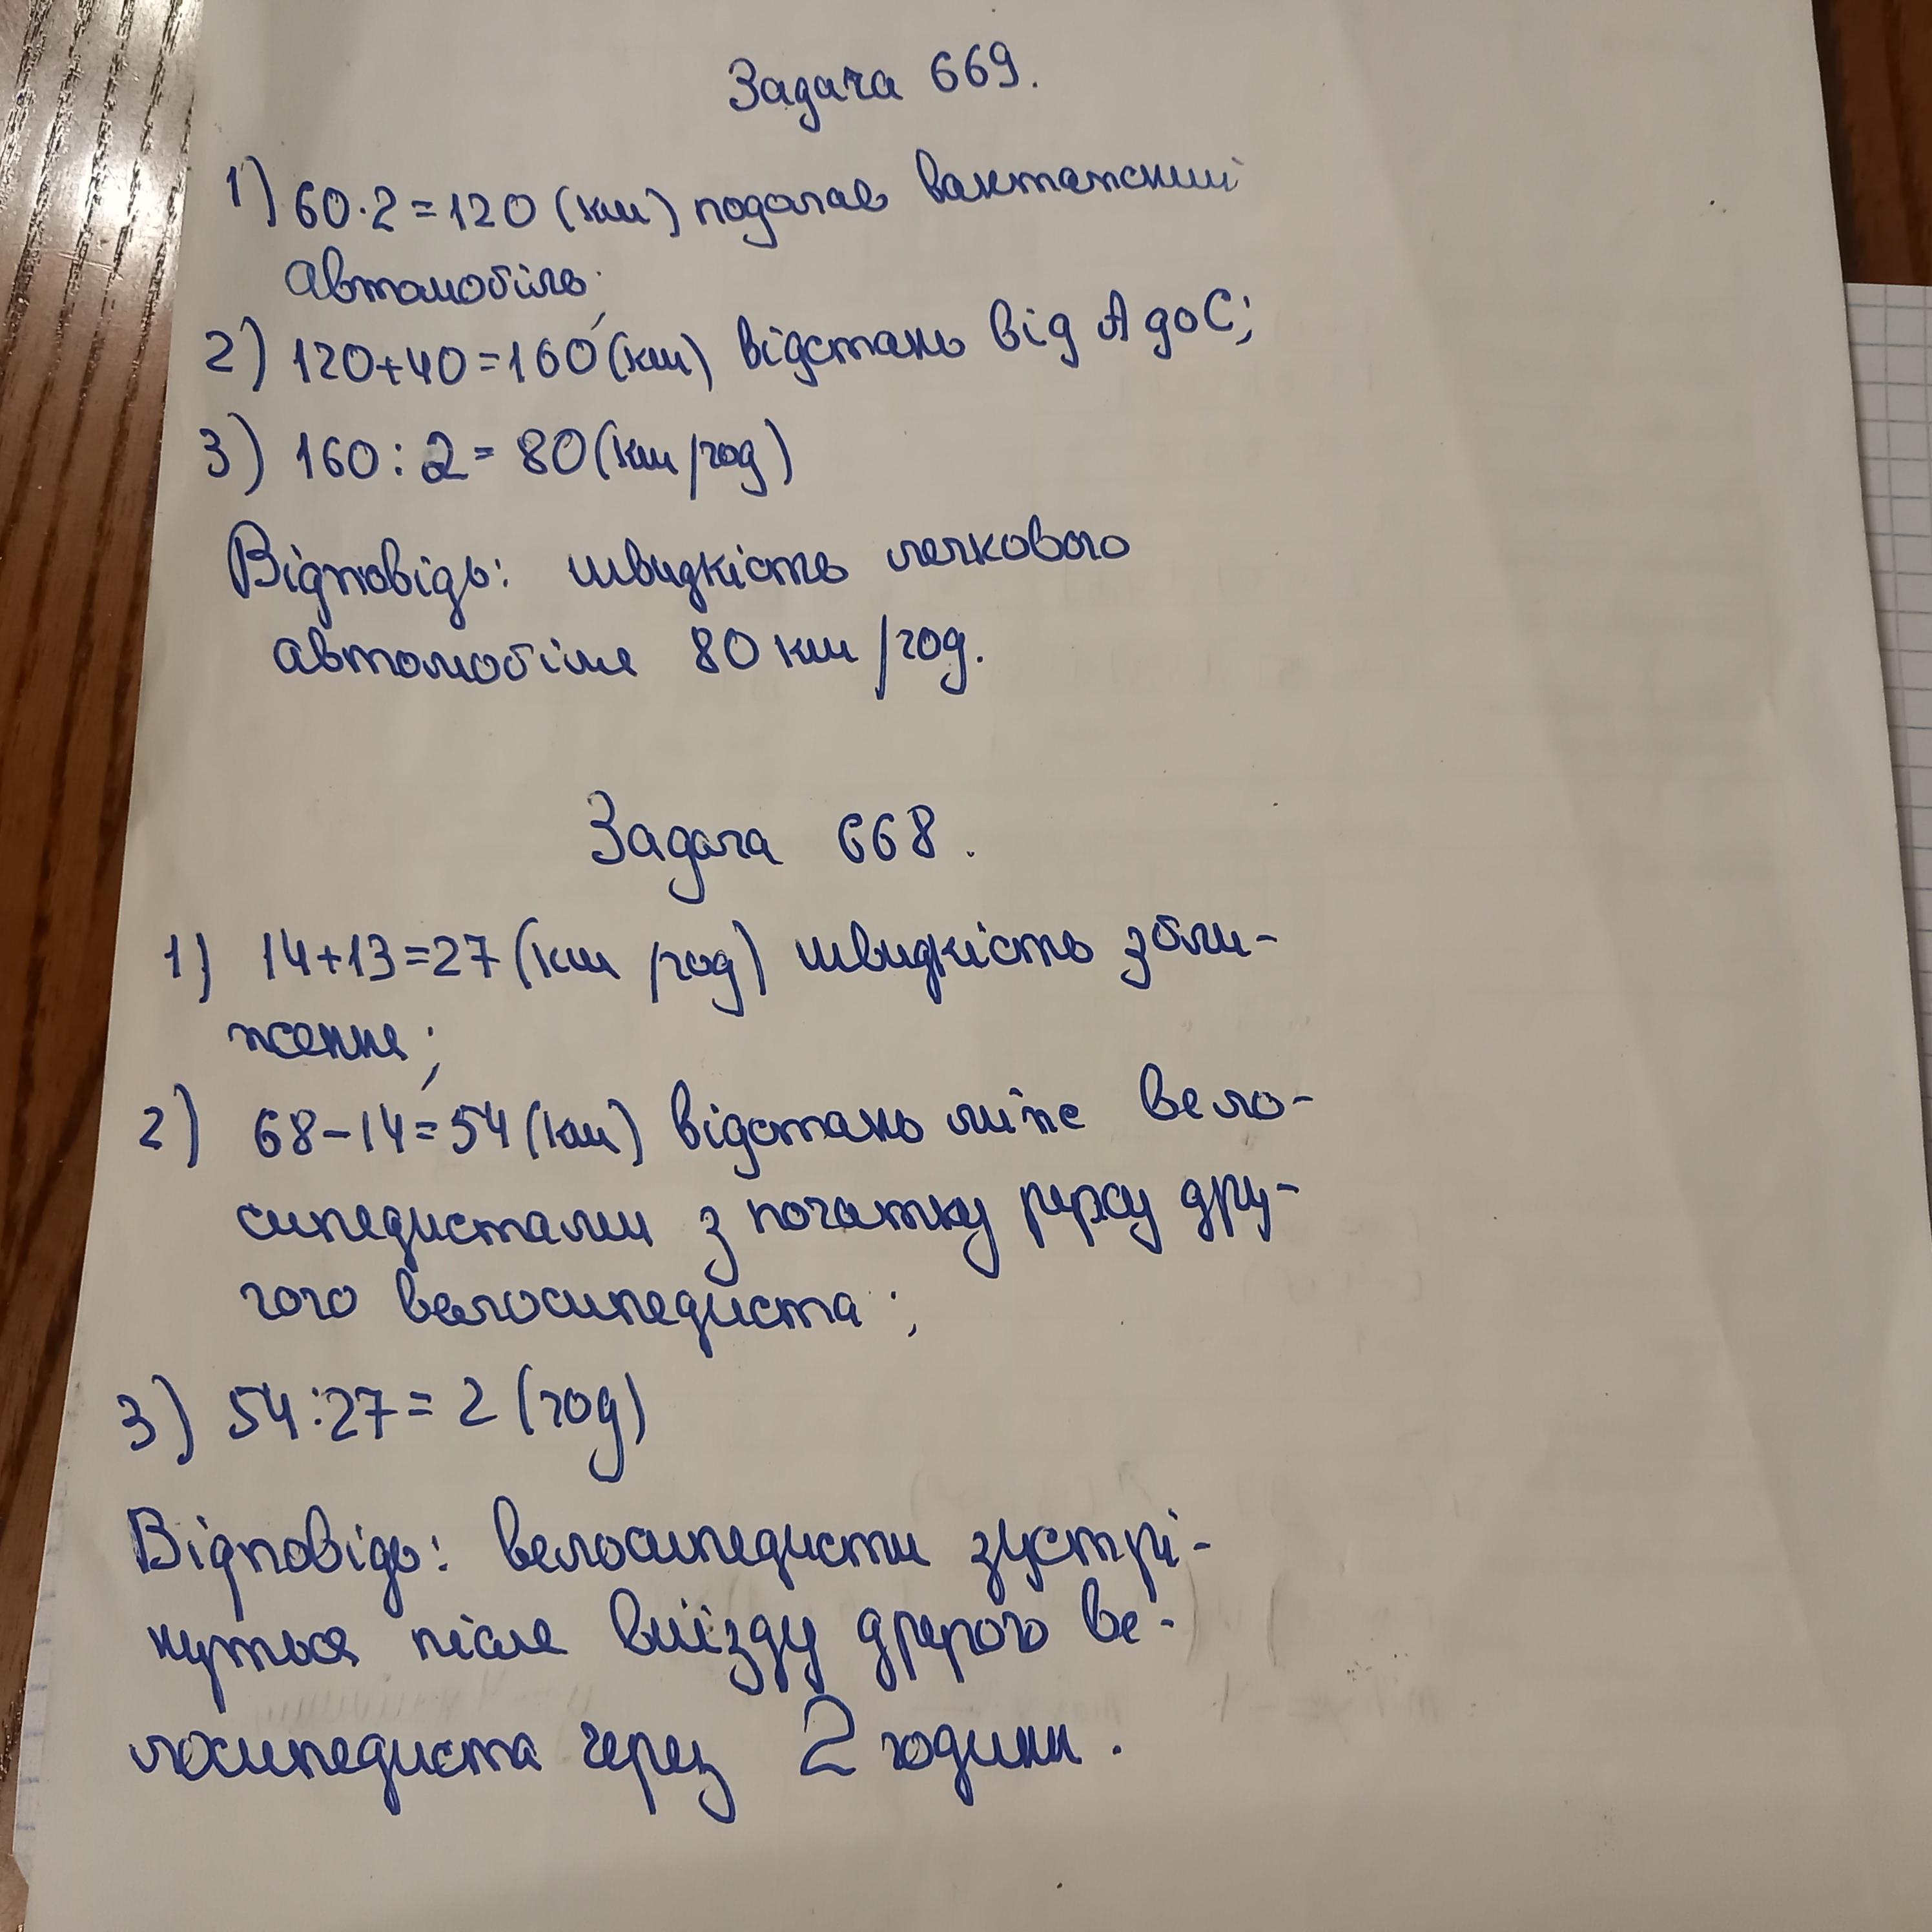 Задача 669.
1) 60·2=120 (км) подолав вантажний
автомобіль;
2) 120+40=160 (км) відстань від А до С;
3) 160:2=80 (км/год)
Відповідь: швидкість легкового
автомобіля 80 км/год.
Задача 668.
1) 14+13=27 (км/год) швидкість збли-
ження;
2) 68-14=54 (км) відстань між вело-
сипедистами з початку руху дру-
гого велосипедиста;
3) 54:27=2 (год)
Відповідь: велосипедисти зустрі-
нуться після виїзду другого ве-
лосипедиста через 2 години.